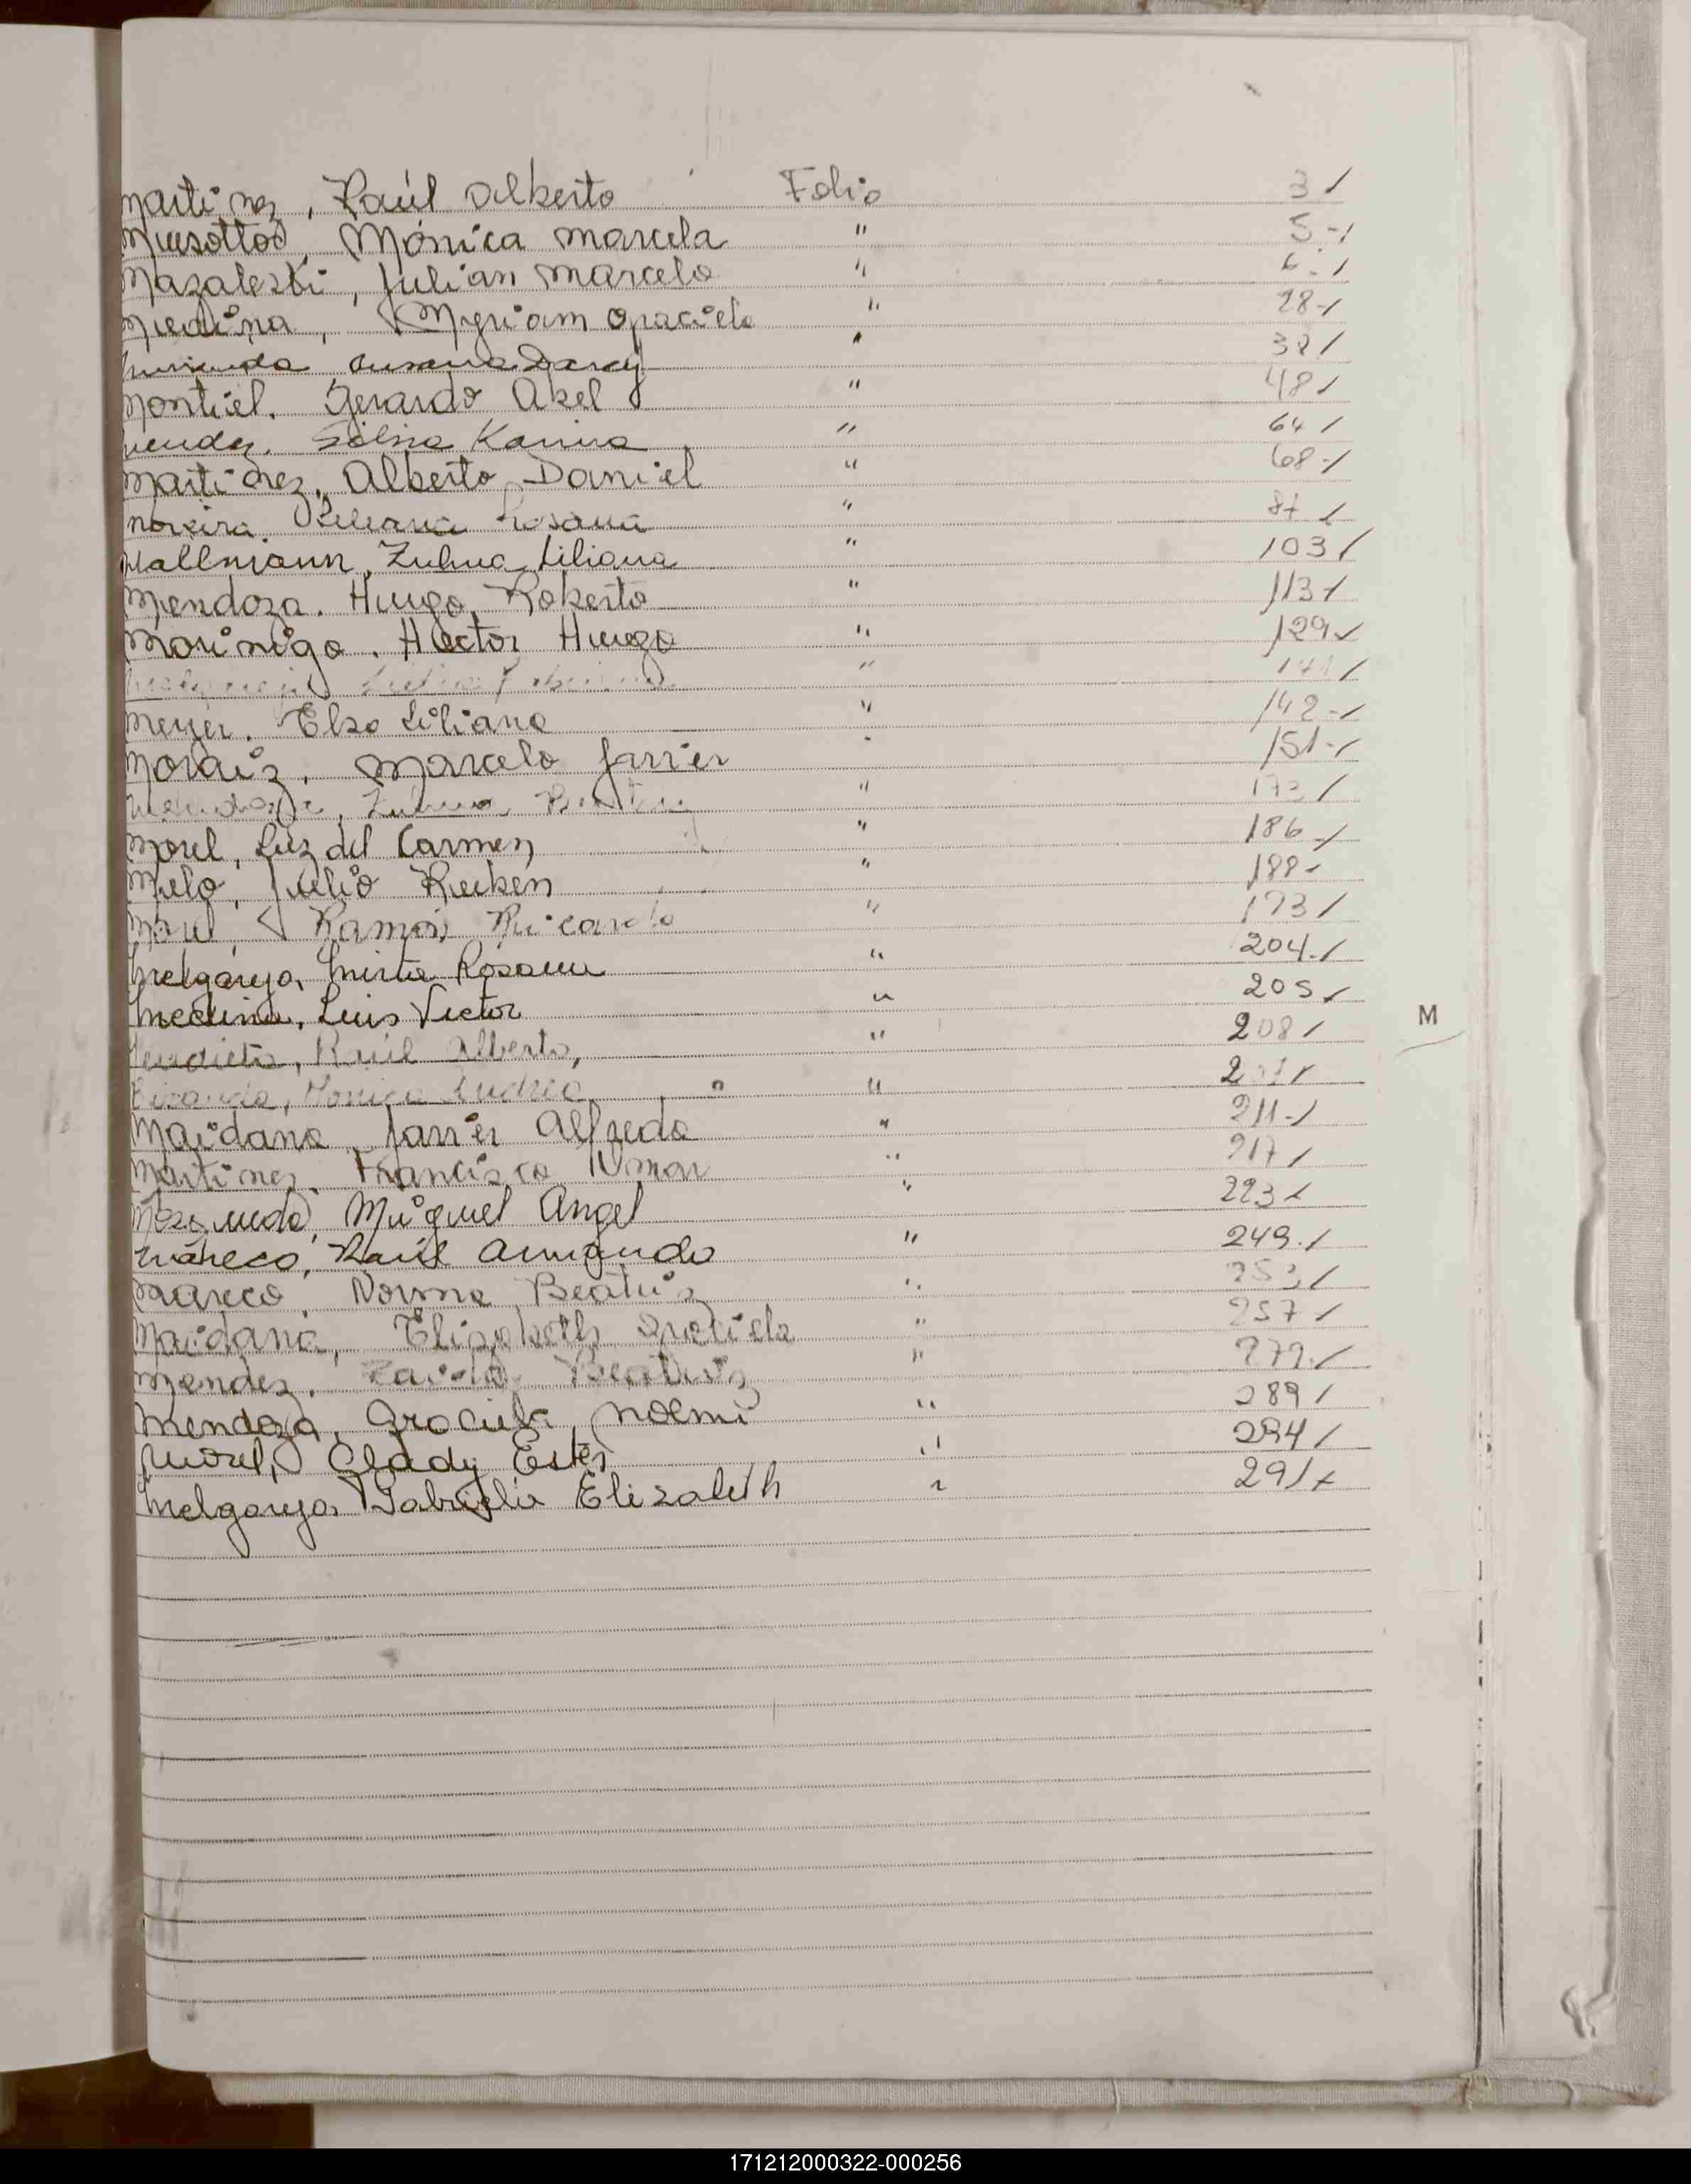 Martinez, Raúl Alberto Folio 3/
Mussotto, Mónica Marcela " 5-/
Mazaleski, Julian Marcelo " 6-/
Medina, Myriam Graciela " 28-/
Miranda Susana Darcy " 38/
Montiel. Gerardo Abel " 48/
Mendez. Silvia Karina " 64/
Martinez, Alberto Daniel " 68-/
Moreira Liliana Rosana " 87/
Mallmann, Zulma Liliana " 103/
Mendoza. Hugo Roberto " 113/
Morinigo. Hector Hugo " 129/
" 141/
Meyer. Elsa Liliana " 142-/
Moraiz, Marcelo Javier " 151-/
Zulma " 173/
Morel, Luz del Carmen " 186-/
Melo, Julio Ruben " 188-
Morel, Ramón Ricardo " 193/
Melgarejo, Mirta Rosana " 204./
Medina, Luis Victor " 205/
Mendieta, Raúl Alberto, " 208/
Miranda, Monica Andrea "
Maidana Javier Alfredo " 211-/
Martinez. Francisco Omar " 217/
Miguel Angel " 223/
Mareco, Raúl Armando " 249./
Mareco, Norma Beatriz " 253/
Maidana, Elizabeth Graciela " 257/
Mendez. Beatriz " 279./
Mendoza, Graciela Noemi " 289/
Morel, Glady Ester " 294/
Melgarejo, Gabriela Elizabeth " 291/
M
171212000322-000256